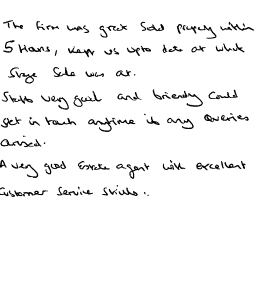 The firm was great Sold property within
5 Hours, Kept us upto date at what
Stage Sale was at.
Staff very good and friendly Could
get in touch anytime if any Queries
arised.
A very good Estate agent with excellent
Customer Service Skills.